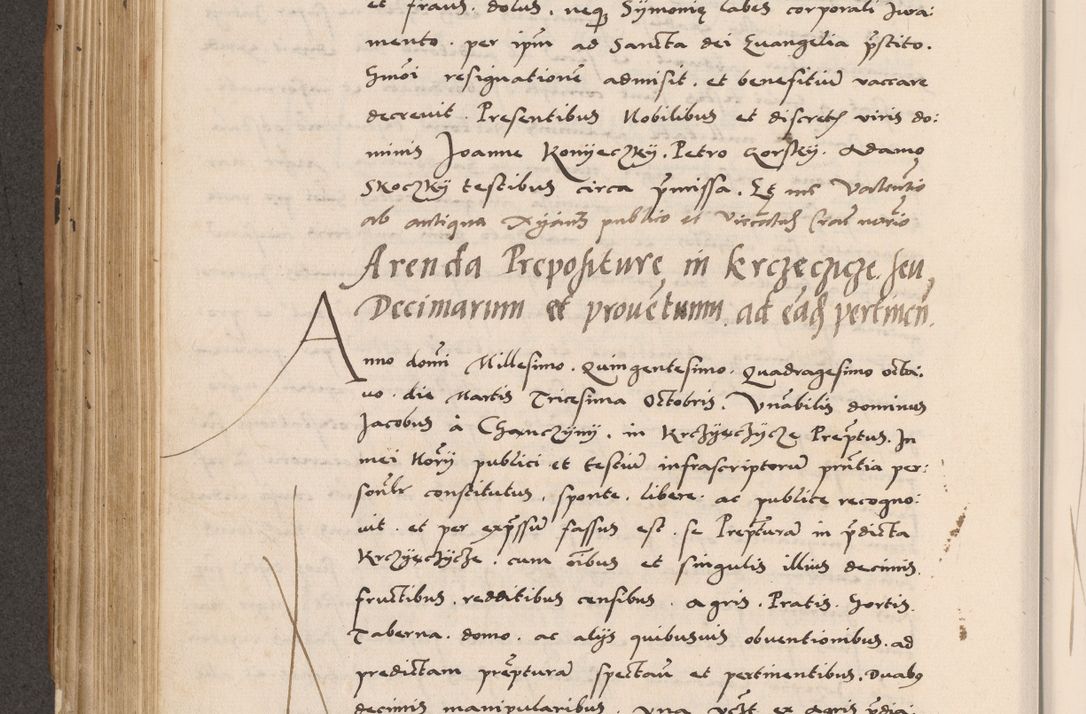 et fraus, dolus, neqꝫ Symonię labes corporali Jura:
mento. per ip̄m ad Sancta dei Euangelia p̄stito.
Hm̄oi resignationē admisit. et benefitiū vaccare
decreuit. Presentibus Nobilibus et discret viris do:
minis Joanne Konyeczky. Petro Gorsky. Adamo
Skoczky testibus circa p̄missa. Et me Valent̄io
ab antiqua publico et
Arenda Prepositure in Krczeczicze. seu
Decimarum et prouētuum ad eād pertinen̄.
Anno domī Millesimo. Quingentesimo. Quadragesimo octa:
uo. die Martis Tricesima Octobris. Vn̄abilis dominus
Jacobus à Chanczyny. in Krczyęczycze Prep̄tus. In
mei No̅rij publici et testiū infrascriptorū pn̄tia per:
son̄lr constitutus. sponte. libere. ac publice recogno:
uit. et per exp̄ssū fassus est. se Prep̄turā in p̄dicta
Krczyęczycze. cum oībus et singulis illius decimis.
fructibus. redditibus censibus. agris. Pratis. Hortis.
Taberna. domo. ac alijs quibusuis obuentionibus. ad
predictam prep̄turā spectan̄ et pertinentibus. Duabꝫ
decimis manipularibus. vna ex Agris p̄dia: